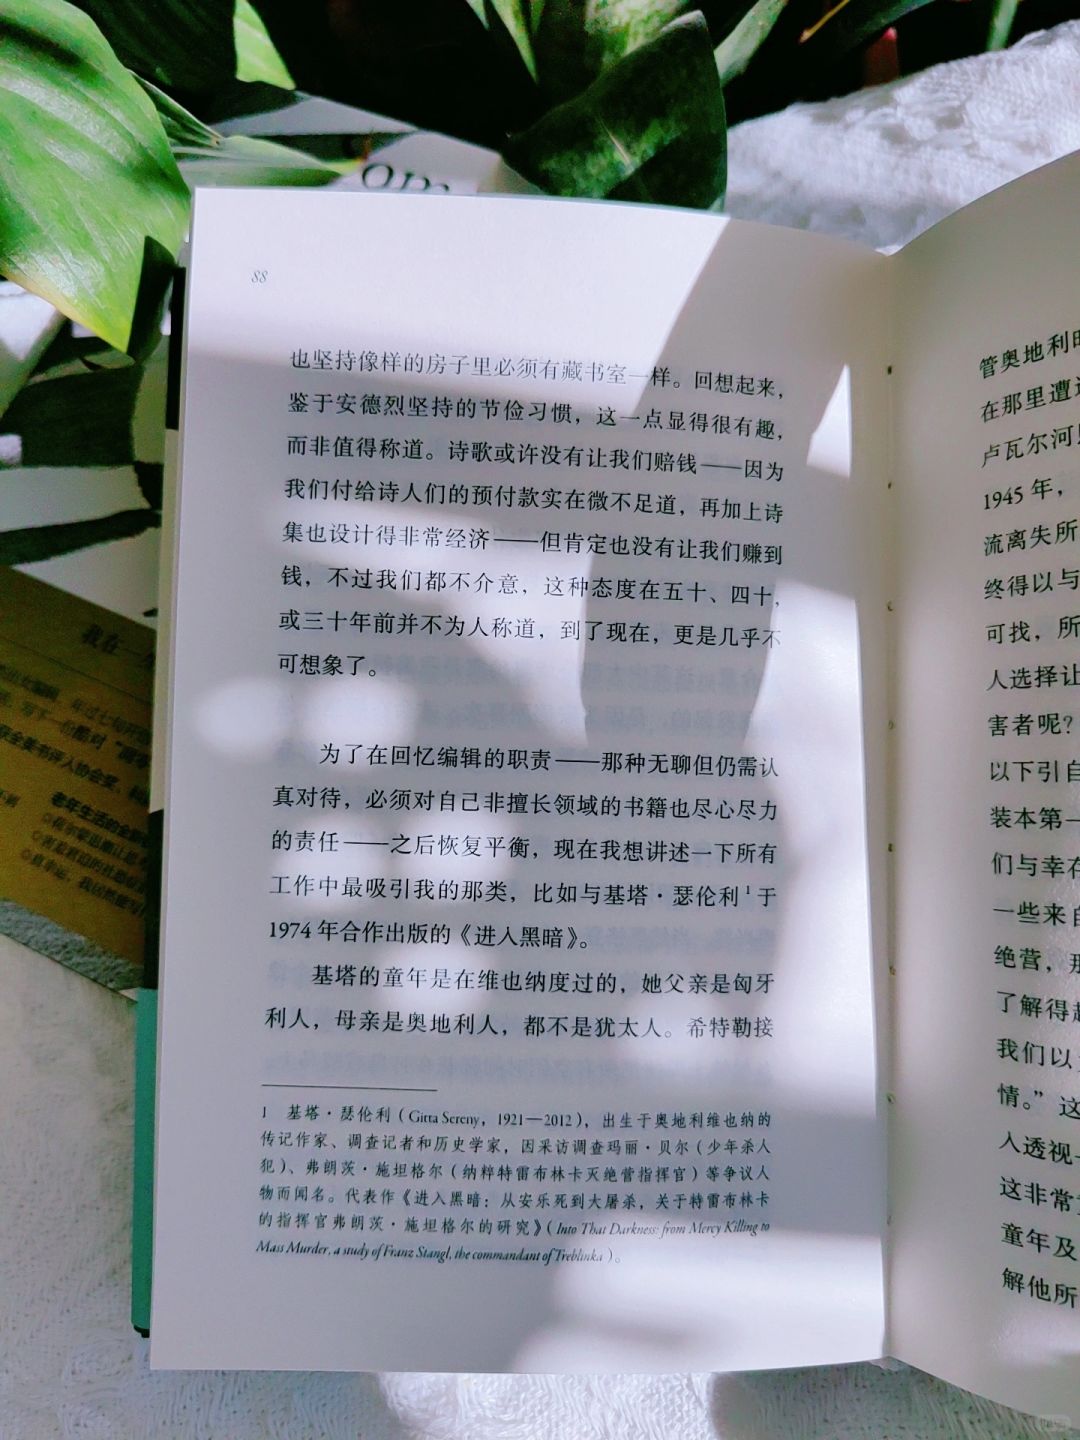 88
也坚持像样的房子里必须有藏书室一样。回想起来，
鉴于安德烈坚持的节俭习惯，这一点显得很有趣，
而非值得称道。诗歌或许没有让我们赔钱——因为
我们付给诗人们的预付款实在微不足道，再加上诗
集也设计得非常经济——但肯定也没有让我们赚到
钱，不过我们都不介意，这种态度在五十、四十，
或三十年前并不为人称道，到了现在，更是几乎不
可想象了。
为了在回忆编辑的职责——那种无聊但仍需认
真对待，必须对自己非擅长领域的书籍也尽心尽力
的责任——之后恢复平衡，现在我想讲述一下所有
工作中最吸引我的那类，比如与基塔·瑟伦利1于
1974年合作出版的《进入黑暗》。
基塔的童年是在维也纳度过的，她父亲是匈牙
利人，母亲是奥地利人，都不是犹太人。希特勒接
1 基塔·瑟伦利（Gitta Sereny，1921—2012），出生于奥地利维也纳的
传记作家、调查记者和历史学家，因采访调查玛丽·贝尔（少年杀人
犯）、弗朗茨·施坦格尔（纳粹特雷布林卡灭绝营指挥官）等争议人
物而闻名。代表作《进入黑暗：从安乐死到大屠杀，关于特雷布林卡
的指挥官弗朗茨·施坦格尔的研究》（Into That Darkness: from Mercy Killing to
Mass Murder, a study of Franz Stangl, the commandant of Treblinka）。
管奥地利
在那里遭
卢瓦尔河
1945年，
流离失所
终得以与
可找，所
人选择让
害者呢？
以下引自
装本第一
们与幸存
一些来自
绝营，那
了解得
我们以
情。”这
入透视
这非常
童年及
解他所